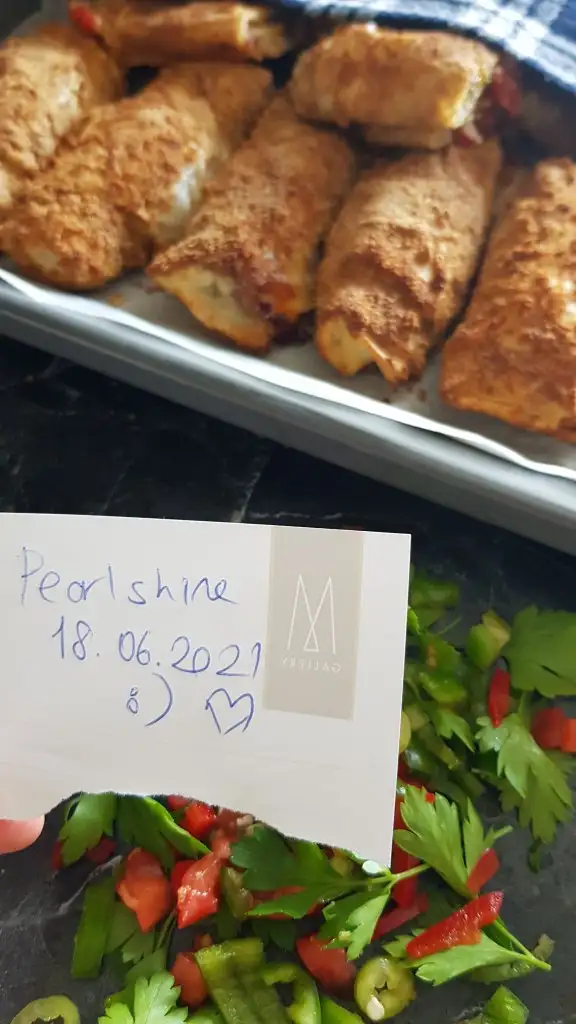 Pearlshine
18.06.2021
:) ♡
M
GALLERY